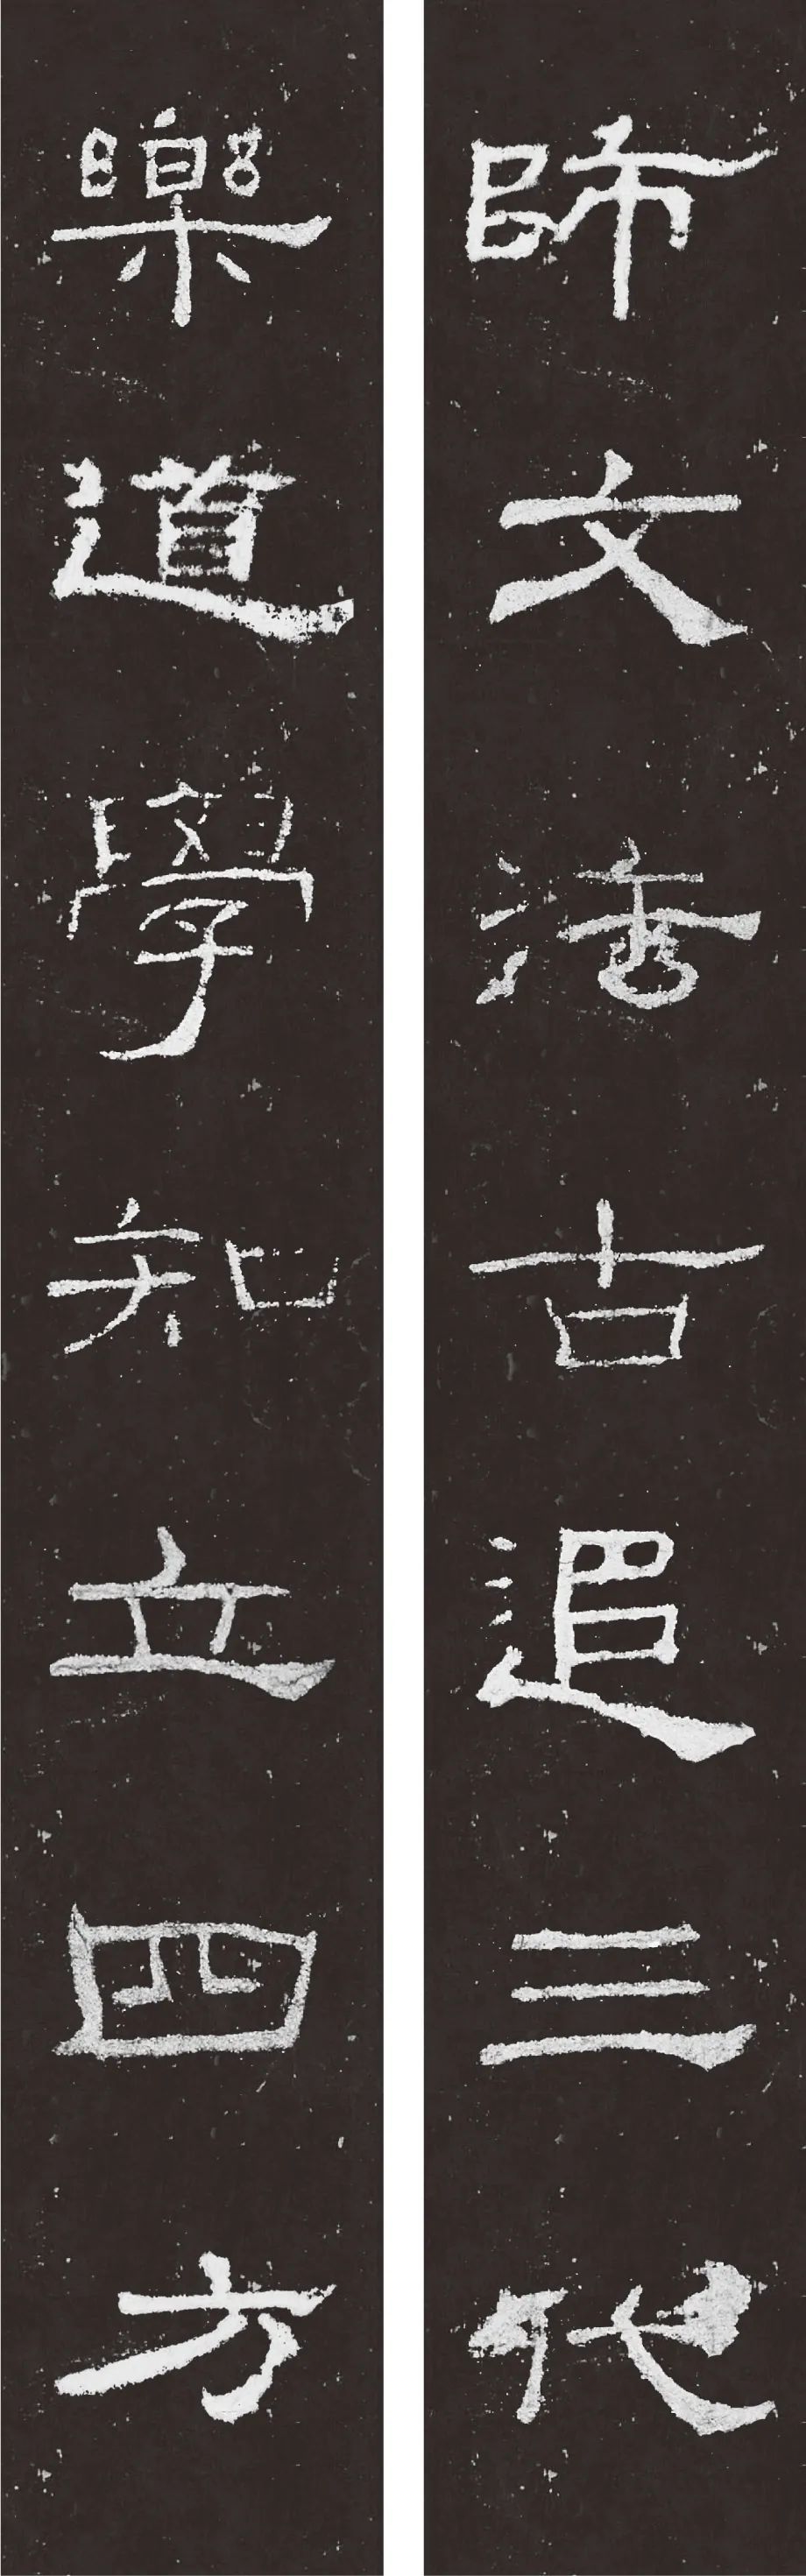 師文活古追三代
樂道學知立四方